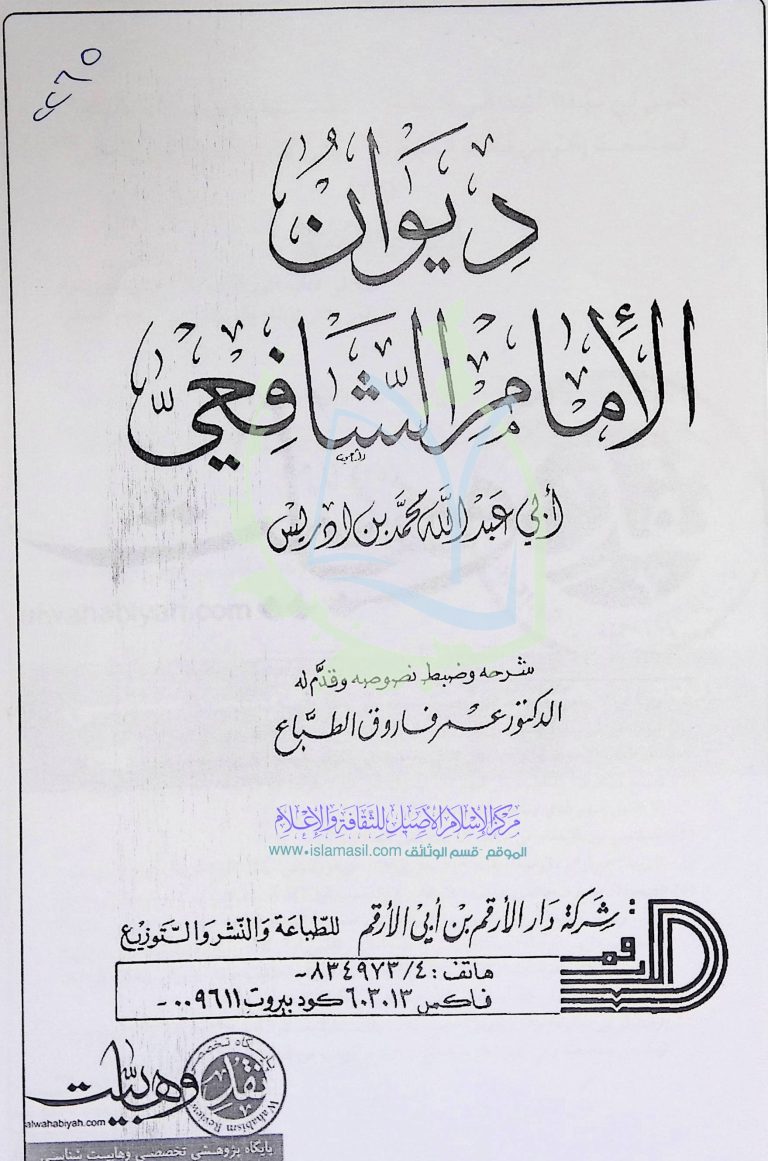 ٢٦٥
دِيوَانُ
الإِمَامِ الشَّافِعِيّ
أبي عَبْد اللَّه محمَّد بن ادريس
شرحه وضبط نصوصه وقدَّم له
الدكتور عمر فاروق الطبَّاع
مركز الإسلام الأصيل للثقافة والإعلام
الموقع - قسم الوثائق www.islamasil.com
شركة دار الأرقم بن أبي الأرقم للطّباعَة وَالنّشر وَالتّوزيع
الارقم
هاتف: ٨٣٤٩٧٣/٤ -
فاكس ٦٠٣٠١٣ كود بيروت ٠٠٩٦١١ -
پایگاه تخصصی
نقد وهابیت
Wahabism Review
alwahabiyah.com
پایگاه پژوهشی تخصصی وهابیت شناسی